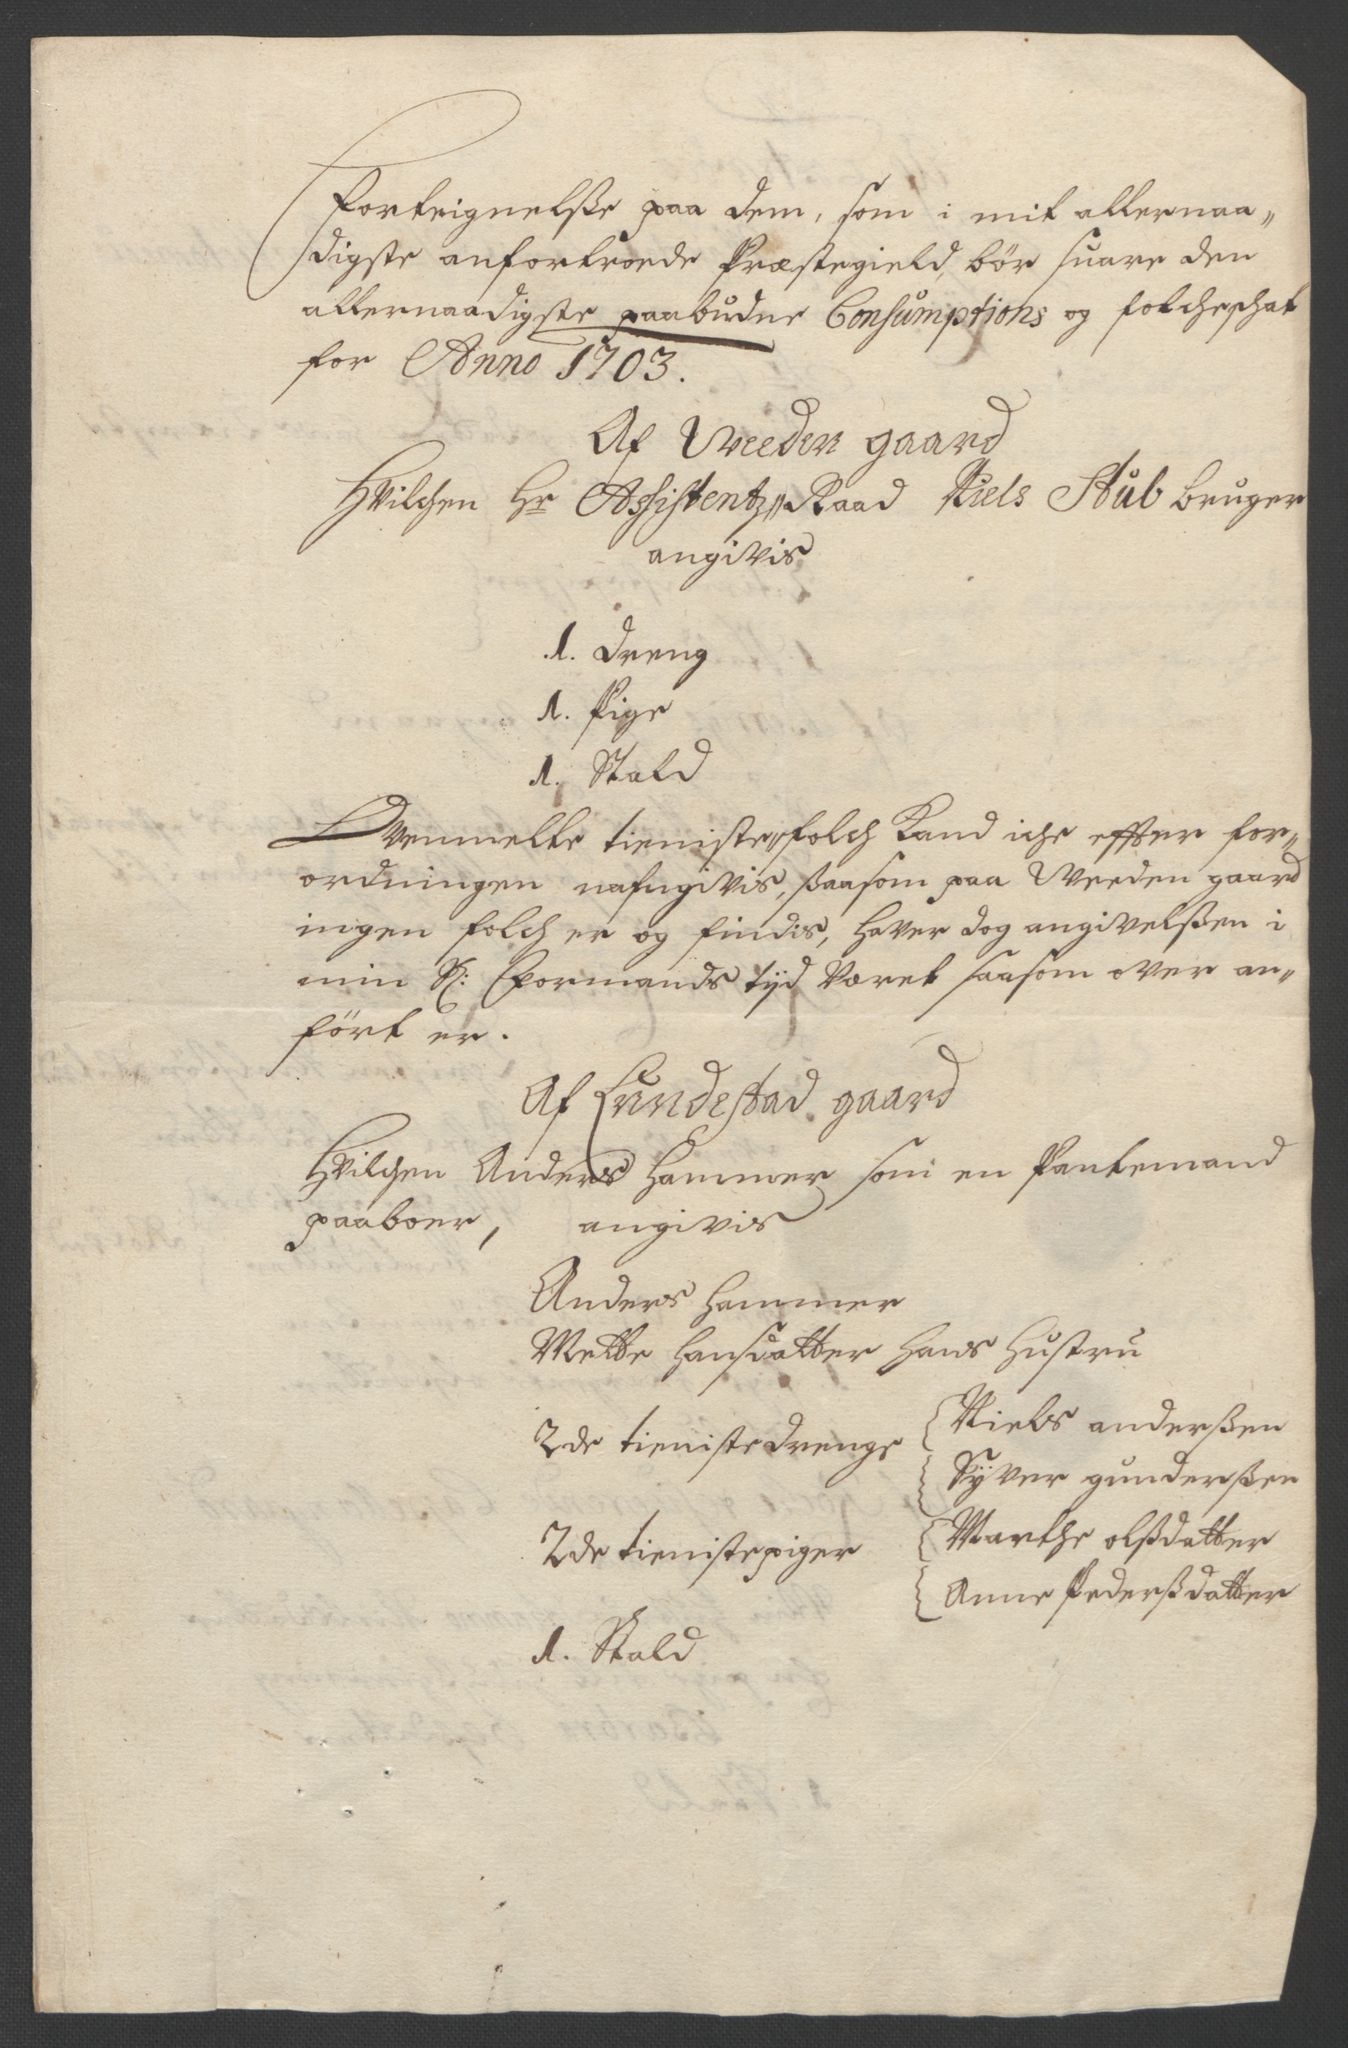 Forteignelsße paa dem, som i mit allernaa„
digste anfortroede Præstegield, bör suare den
allernaadigste paabudne Consumptions og folcheschat
for Anno 1703.
Af Weeden gaard
Hvilchen Hr Assistentz„Raad Niels Stub bruger
angivis
1. Dreng
1. Pige
1. Stald
Ovenmelte tieniste„folch Kand iche effter for„
ordningen nafngivis, ßaasom paa Weeden gaard
ingen folch er og findis, haver dog angivelßen i
min S: Formands tijd Været saasom over an„
fört er.
Af Lundestad gaard
Hvilchen Anders Hammer som en Pantemand
paaboer, angivis
Anders Hammer
Mette Hansdatter hans Hustru
2de tienistedrenge { Niels anderßen
Syver gunderßen
2de tienistepiger { Marthe olßdatter
Anne Pederßdatter
1. Stald